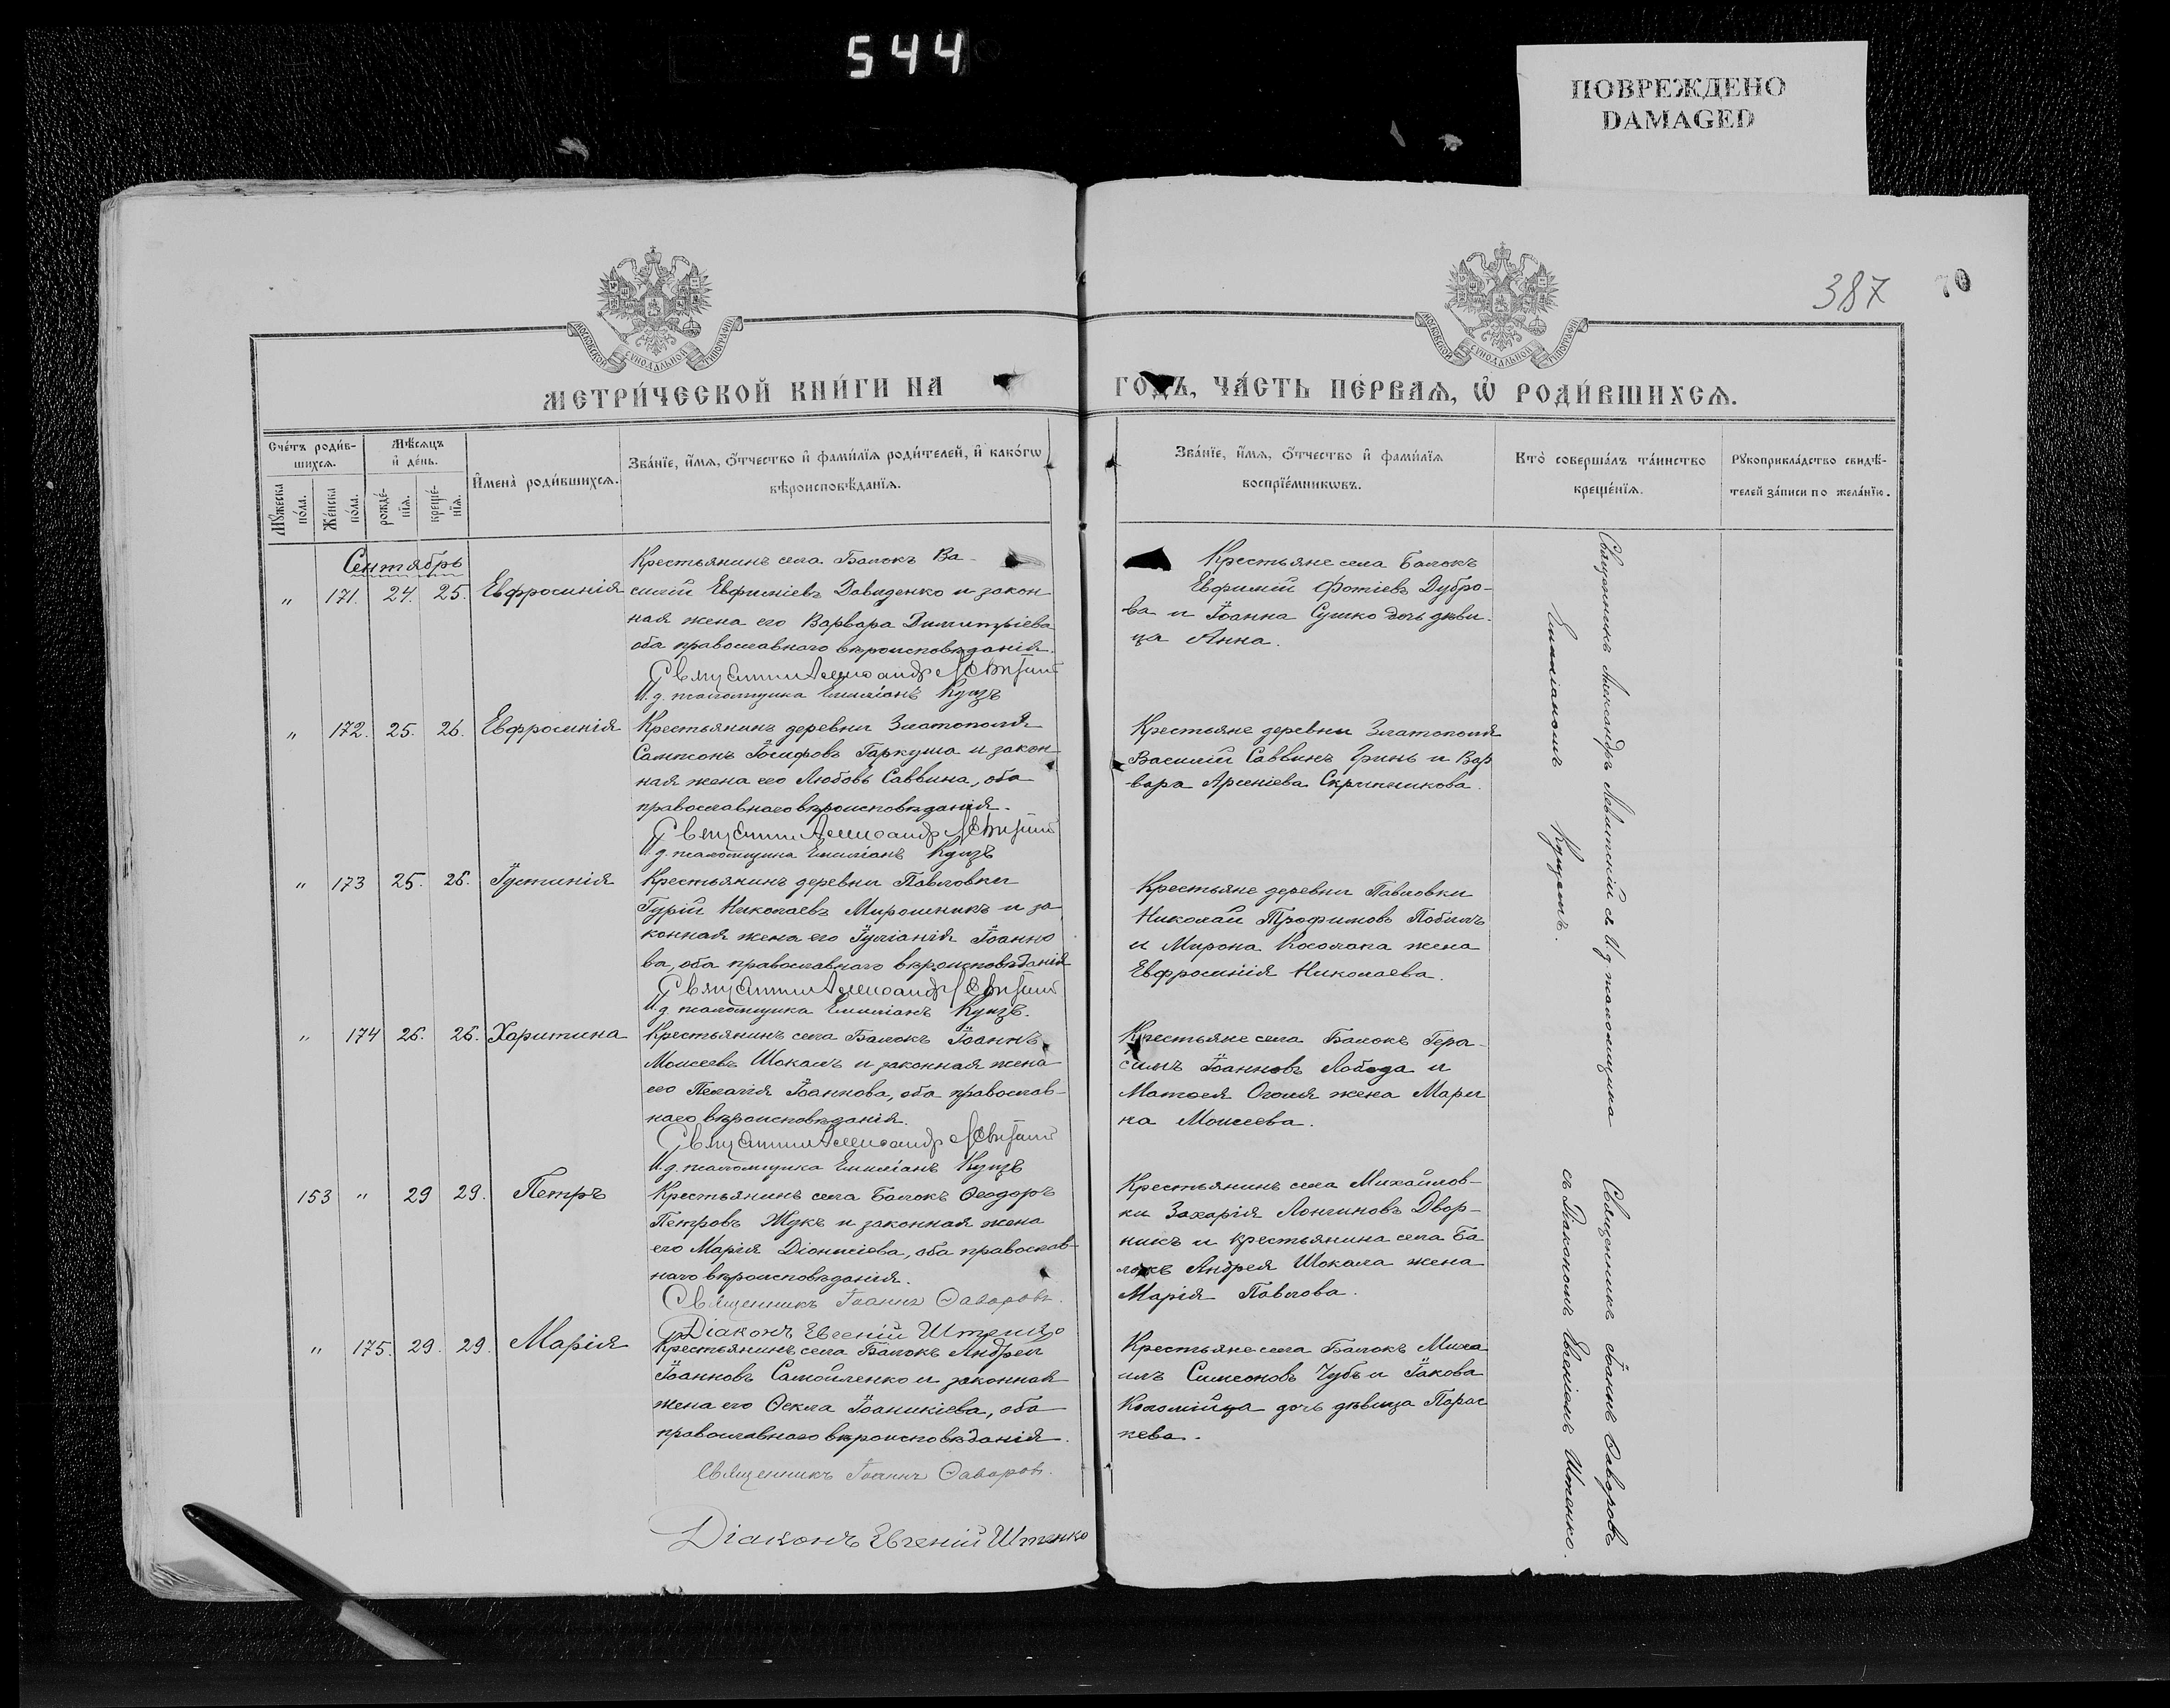 544
ПОВРЕЖДЕНО
DAMAGED
387
70
МОСКОВСКОЙ СѴНОДАЛЬНОЙ ТИПОГРАФІИ
МОСКОВСКОЙ СѴНОДАЛЬНОЙ ТИПОГРАФІИ
МЕТРИ́ЧЕСКОЙ КНИ́ГИ НА
ГОДЪ, ЧА́СТЬ ПЕ́РВАЯ, Ѽ РОДИ́ВШИХСЯ.
Сче́тъ роди́в-
шихся.
Мѣ́сяцъ
и҆ де́нь.
Мꙋ́жеска
по́ла.
Же́нска
по́ла.
рожде́-
нїя.
креще́-
нїя.
И҆мена̀ роди́вшихся.
Зва́нїе, и҆́мя, ѻ҆́тчество и҆ фами́лїя роди́телей, и҆ како́гѡ
вѣроисповѣ́данїя.
Зва́нїе, и҆́мя, ѻ҆́тчество и҆ фами́лїя
воспрїе́мникѡвъ.
Кто̀ соверша́лъ та́инство
креще́нїя.
Рꙋкоприкла́дство свидѣ́-
телей за́писи по жела́нїю.
Сентябрь
" 171. 24. 25. Евфросинія
Крестьянинъ села Балокъ Ва-
силій Евфиміевъ Давиденко и закон
ная жена его Варвара Димитріева
оба православнаго вѣроисповѣданія.
Священникъ Александр Левитскій
И. д. псаломщика Емиліанъ Куцъ
Крестьяне села Балокъ
Евфимій Фотіевъ Дубро-
ва и Іоанна Сушко дочь дѣви-
ца Анна.
" 172. 25. 26. Евфросинія
Крестьянинъ деревни Златополя
Сампсонъ Іосифовъ Гаркуша и закон
ная жена его Любовь Саввина, оба
православнаго вѣроисповѣданія.
Священникъ Александр Левитскій
И. д. псаломщика Емиліанъ Куцъ
Крестьяне деревни Златополя
Василій Саввинъ Гринь и Вар
вара Арсеніева Скрипникова.
" 173 25. 26. Іустинія
Крестьянинъ деревни Павловки
Гурій Николаевъ Мирошникъ и за
конная жена его Іуліанія Іоанно
ва, оба православнаго вѣроисповѣданія
Священникъ Александр Левитскій
И. д. псаломщика Емиліанъ Куцъ.
Крестьяне деревни Павловки
Николай Трофимовъ
и Мирона жена
Евфросинія Николаева.
" 174 26. 26. Харитина
Крестьянинъ села Балокъ Іоаннъ
Моисеевъ Шокалъ и законная жена
его Пелагія Іоаннова, оба православ-
наго вѣроисповѣданія.
Священникъ Александр Левитскій
И. д. псаломщика Емиліанъ Куцъ
Крестьяне села Балокъ Гера-
симъ Іоанновъ Лобода и
Матѳея Оголя жена Мари
на Моисеева.
153 " 29 29. Петръ
Крестьянинъ села Балокъ Ѳеодоръ
Петровъ Жукъ и законная жена
его Марія Діонисіева, оба православ-
наго вѣроисповѣданія.
Священникъ Іоаннъ Ѳаворовъ.
Діаконъ Евгеній Штенко
Крестьянинъ села Михайлов-
ки Захарія Лонгиновъ Двор-
никъ и крестьянина села Ба
локъ Андрея Шокала жена
Марія Павлова.
" 175. 29. 29. Марія
Крестьянинъ села Балокъ Андрей
Іоанновъ Самойленко и законная
жена его Ѳекла Іоаникіева, оба
православнаго вѣроисповѣданія.
Священникъ Іоаннъ Ѳаворовъ.
Діаконъ Евгеній Штенко
Крестьяне села Балокъ Миха
илъ Симеоновъ Чубъ и Іакова
Коломійца дочь дѣвица Парас
кева.
Священникъ Александръ Левитскій съ И. д. псаломщика
Емиліаномъ Куцемъ.
Священникъ Іоаннъ Ѳаворовъ
съ Діакономъ Евгеніемъ Штенко.